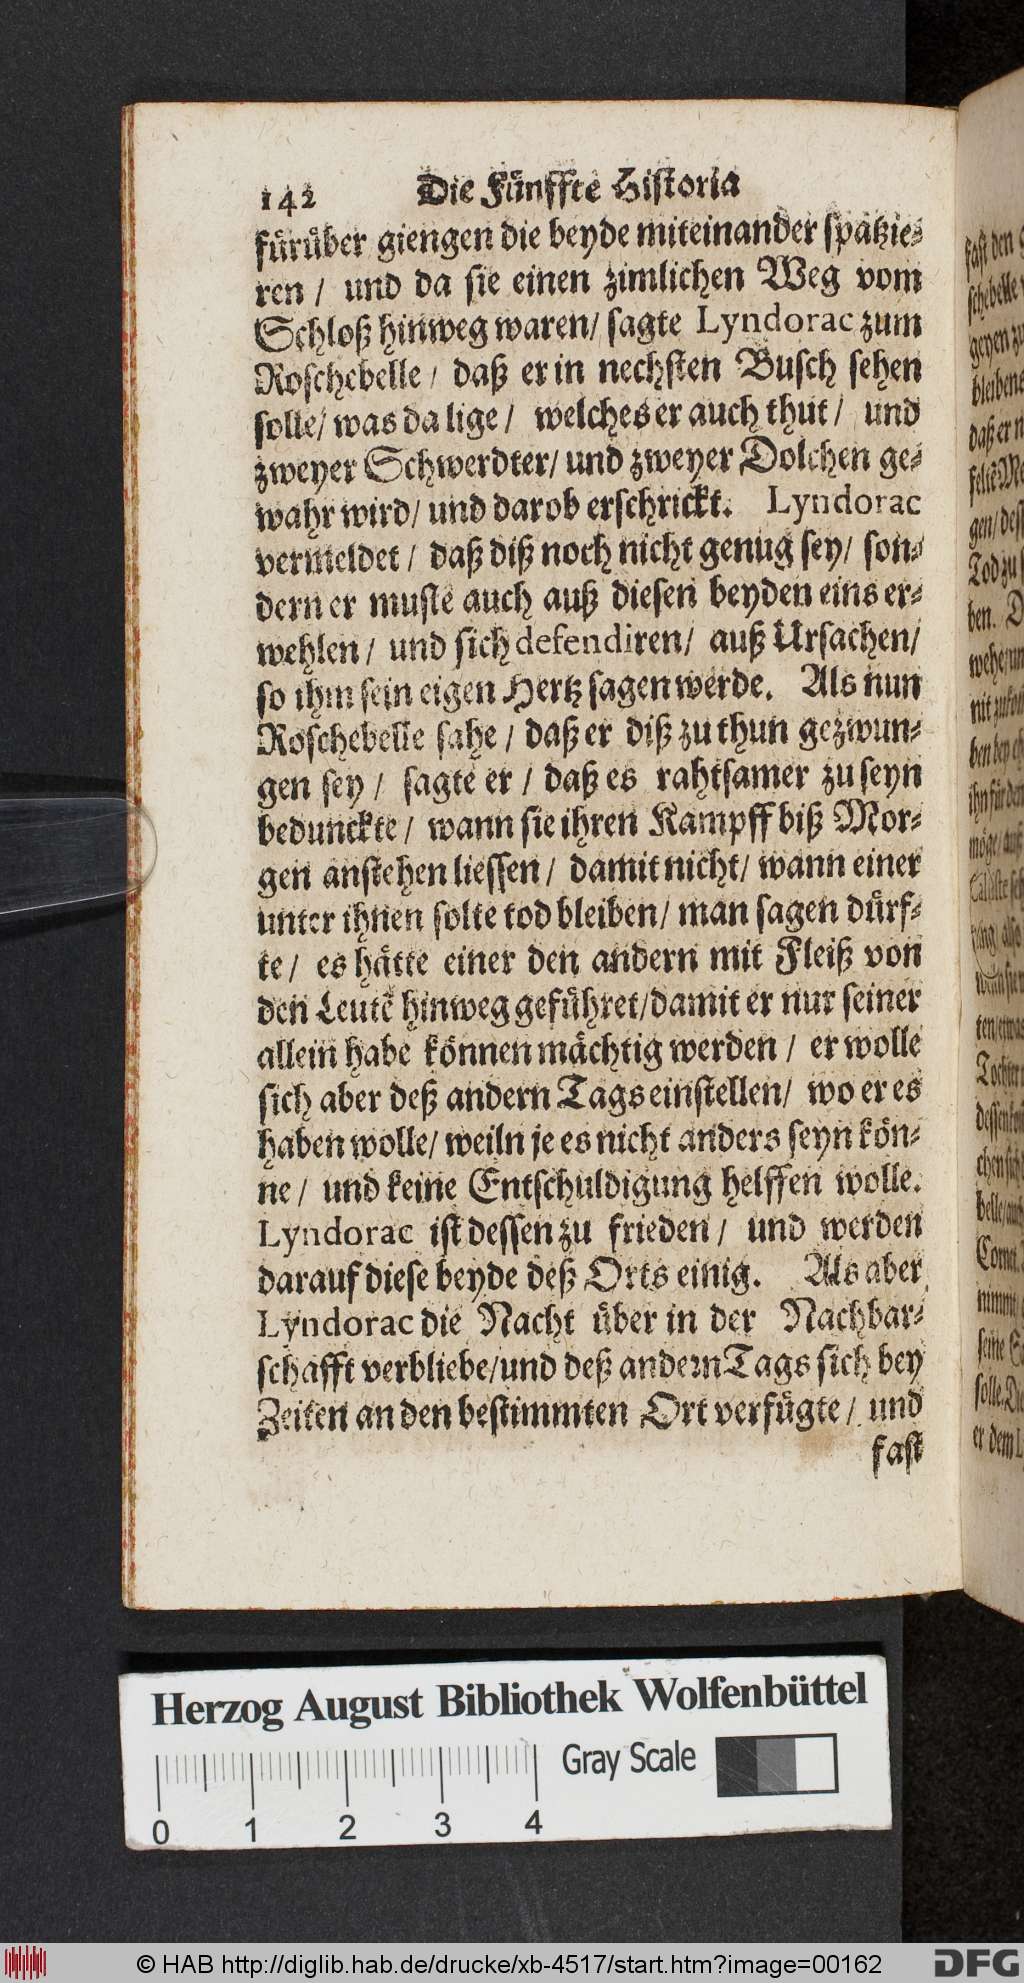 142 Die Fünffte Historia
fürüber giengen die beyde miteinander spätzie-
ren / und da sie einen zimlichen Weg vom
Schloß hinweg waren / sagte Lyndorac zum
Roschebelle / daß er in nechsten Busch sehen
solle / was da lige / welches er auch thut / und
zweyer Schwerdter / und zweyer Dolchen ge-
wahr wird / und darob erschrickt. Lyndorac
vermeldet / daß diß noch nicht genug sey / son-
dern er muste auch auß diesen beyden eins er-
wehlen / und sich defendiren / auß Ursachen /
so ihm sein eigen Hertz sagen werde. Als nun
Roschebelle sahe / daß er diß zu thun gezwun-
gen sey / sagte er / daß es rahtsamer zu seyn
bedunckte / wann sie ihren Kampff biß Mor-
gen anstehen liessen / damit nicht / wann einer
unter ihnen solte tod bleiben / man sagen dürf-
te / es hätte einer den andern mit Fleiß von
den Leutẽ hinweg geführet / damit er nur seiner
allein habe können mächtig werden / er wolle
sich aber deß andern Tags einstellen / wo er es
haben wolle / weiln je es nicht anders seyn kön-
ne / und keine Entschuldigung helffen wolle.
Lyndorac ist dessen zu frieden / und werden
darauf diese beyde deß Orts einig. Als aber
Lyndorac die Nacht über in der Nachbar-
schafft verbliebe / und deß andern Tags sich bey
Zeiten an den bestimmten Ort verfügte / und
fast
Herzog August Bibliothek Wolfenbüttel
Gray Scale
0 1 2 3 4
© HAB http://diglib.hab.de/drucke/xb-4517/start.htm?image=00162
DFG